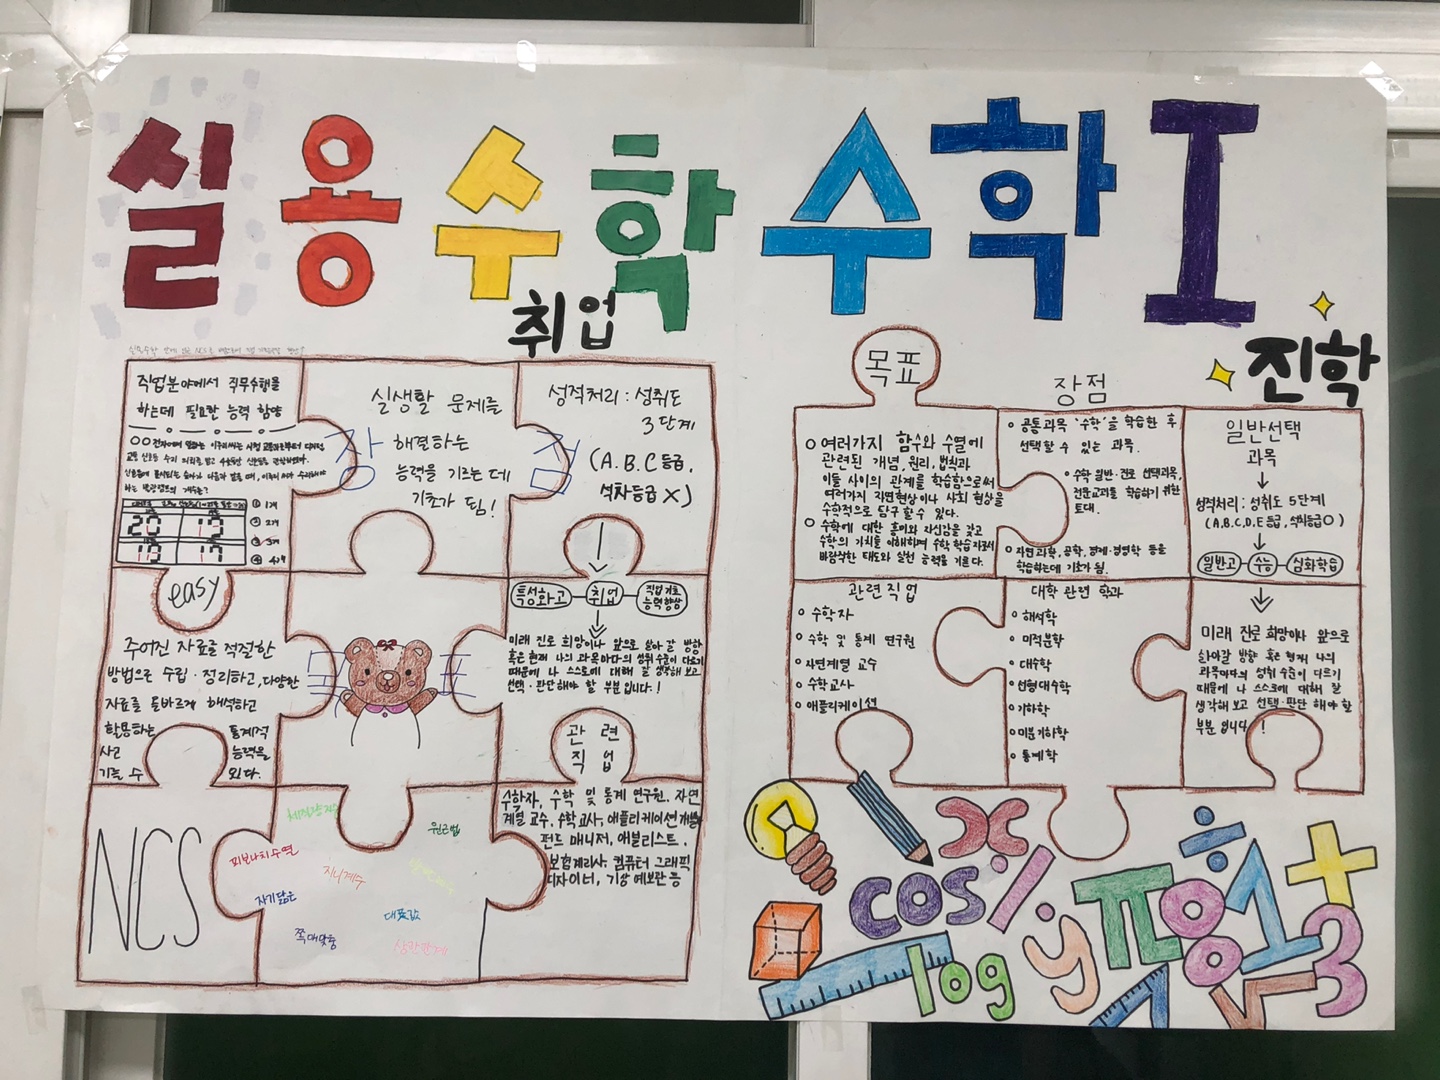 실용수학
취업
수학I
진학
직업분야에서 직무수행을
하는데 필요한 능력 함양
① 1개
② 2개
③ 3개
④ 4개
20 12
10 17
실생활 문제를
해결하는
능력을 기르는 데
기초가 됨!
장점
성적처리 : 성취도
3단계
(A.B.C 등급,
석차등급 X)
특성화고 취업 직업기초
능력향상
easy
주어진 자료를 적절한
방법으로 수립·정리하고, 다양한
자료를 올바르게 해석하고
활용하는 통계적
사고 능력을
기를 수 있다.
목표
미래 진로 희망이나 앞으로 살아갈 방향
혹은 현재 나의 과목마다의 성취수준이 다르기
때문에 나 스스로에 대해 잘 생각해 보고
선택·판단해야 할 부분입니다!
관련
직업
수학자, 수학 및 통계 연구원, 자연
계열 교수, 수학교사, 애플리케이션 개발
펀드 매니저, 애널리스트,
보험계리사, 컴퓨터 그래픽
디자이너, 기상 예보관 등
NCS
체질량지수
원근법
피보나치수열
지니계수
자기닮음
대푯값
쪽매맞춤
삼각관계
목표
o 여러가지 함수와 수열에
관련된 개념, 원리, 법칙과
이들 사이의 관계를 학습함으로써
여러가지 자연현상이나 사회 현상을
수학적으로 탐구할 수 있다.
o 수학에 대한 흥미와 자신감을 갖고
수학의 가치를 이해하며 수학 학습자로서
바람직한 태도와 실천 능력을 기른다.
장점
o 공통과목 '수학'을 학습한 후
선택할 수 있는 과목.
o 수학 일반·진로 선택과목,
전문교과를 학습하기 위한
토대.
o 자연과학, 공학, 경제·경영학 등을
학습하는데 기초가 됨.
일반선택
과목
성적처리 : 성취도 5단계
(A,B,C,D,E 등급, 석차등급O)
일반고 수능 심화학습
관련직업
o 수학자
o 수학 및 통계 연구원
o 자연계열 교수
o 수학교사
o 애플리케이션
대학 관련 학과
o 해석학
o 미적분학
o 대수학
o 선형대수학
o 기하학
o 미분기하학
o 통계학
미래 진로 희망이나 앞으로
살아갈 방향 혹은 현재 나의
과목마다의 성취수준이 다르기
때문에 나 스스로에 대해 잘
생각해 보고 선택·판단 해야 할
부분 입니다!
x ÷ +
cos % π 8 1 3
log y 7 √